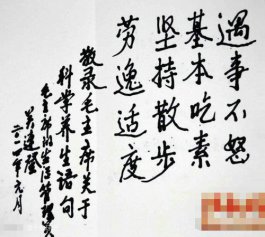 遇事不怒
基本吃素
坚持散步
劳逸适度
敬录毛主席关于
科学养生语句
毛主席的生活管理员
吴连登
二〇一四年元月